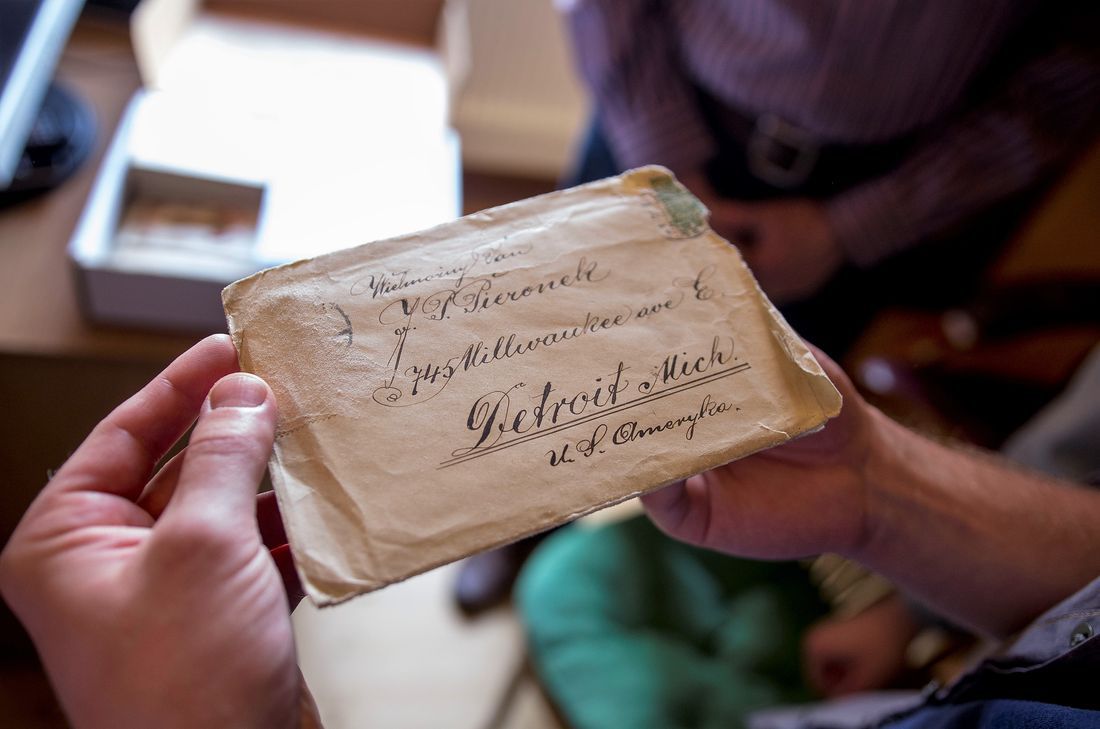 Wielmożny Pan
J. P. Pieronek
745 Millwaukee ave E.
Detroit Mich.
U. S. Ameryka.